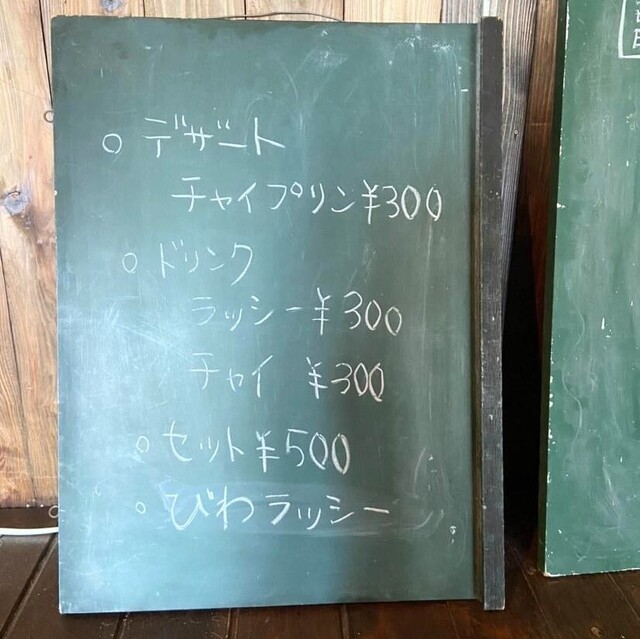 ○ デザート
チャイプリン ¥300
○ ドリンク
ラッシー ¥300
チャイ ¥300
○ セット ¥500
○ びわラッシー